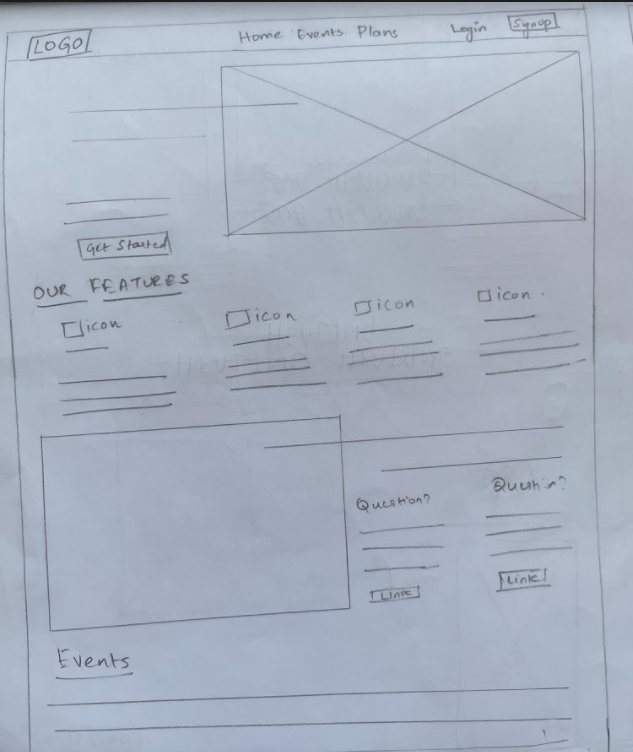 LOGO Home Events Plans Login Signup
Get Started
OUR FEATURES
icon icon icon icon
Question? Question?
Link Link
Events